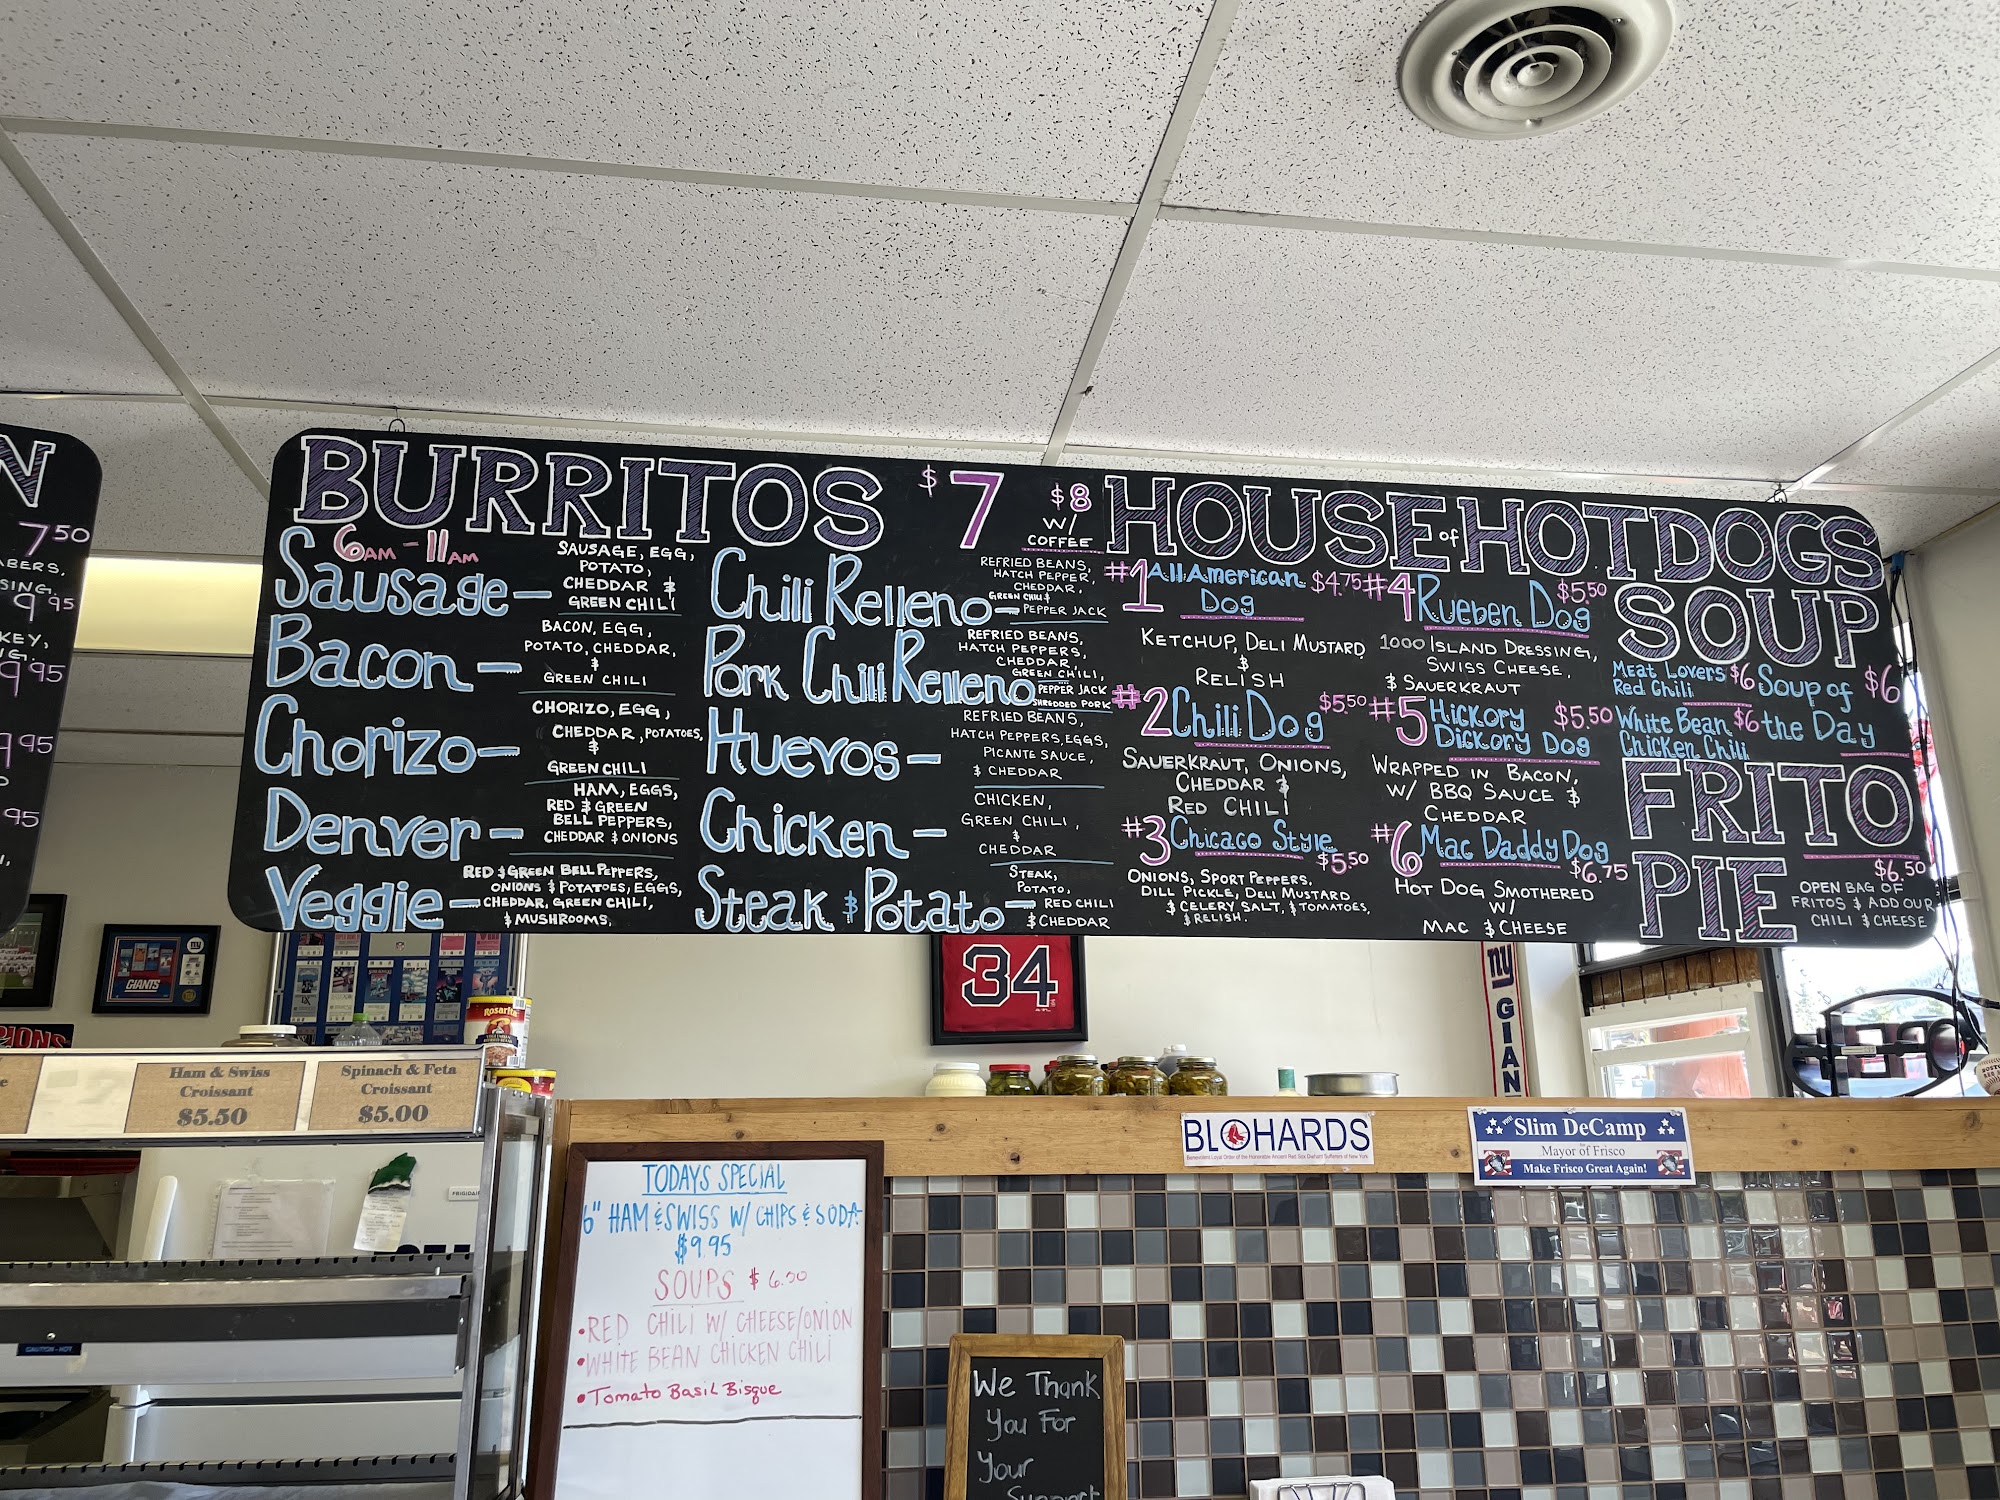 N
7 50
9 95
9 95
9 95
95
BURRITOS $7 $8
W/
COFFEE
6AM - 11AM
Sausage -
SAUSAGE, EGG,
POTATO,
CHEDDAR &
GREEN CHILI
Bacon -
BACON, EGG,
POTATO, CHEDDAR,
&
GREEN CHILI
Chorizo -
CHORIZO, EGG,
CHEDDAR, POTATOES,
&
GREEN CHILI
Denver -
HAM, EGGS,
RED & GREEN
BELL PEPPERS,
CHEDDAR & ONIONS
Veggie -
RED & GREEN BELL PEPPERS,
ONIONS & POTATOES, EGGS,
CHEDDAR, GREEN CHILI,
& MUSHROOMS.
Chili Relleno -
REFRIED BEANS,
HATCH PEPPER,
CHEDDAR,
GREEN CHILI &
PEPPER JACK
Pork Chili Relleno
REFRIED BEANS,
HATCH PEPPERS,
CHEDDAR,
GREEN CHILI,
PEPPER JACK
SHREDDED PORK
Huevos -
REFRIED BEANS,
HATCH PEPPERS, EGGS,
PICANTE SAUCE,
& CHEDDAR
Chicken -
CHICKEN,
GREEN CHILI,
&
CHEDDAR
Steak & Potato -
STEAK,
POTATO,
RED CHILI
& CHEDDAR
HOUSE of HOTDOGS
#1 All American $4.75
Dog
KETCHUP, DELI MUSTARD
&
RELISH
#2 Chili Dog $5.50
SAUERKRAUT, ONIONS,
CHEDDAR &
RED CHILI
#3 Chicago Style
$5.50
ONIONS, SPORT PEPPERS,
DILL PICKLE, DELI MUSTARD
& CELERY SALT, & TOMATOES,
& RELISH.
#4 Rueben Dog $5.50
1000 ISLAND DRESSING,
SWISS CHEESE,
& SAUERKRAUT
#5 Hickory $5.50
Dickory Dog
WRAPPED IN BACON,
W/ BBQ SAUCE &
CHEDDAR
#6 Mac Daddy Dog
$6.75
HOT DOG SMOTHERED
W/
MAC & CHEESE
SOUP
Meat Lovers $6
Red Chili
White Bean $6
Chicken Chili
Soup of $6
the Day
FRITO
PIE
$6.50
OPEN BAG OF
FRITOS & ADD OUR
CHILI & CHEESE
GIANTS
34
NY GIAN
Rosarita
Ham & Swiss
Croissant
$5.50
Spinach & Feta
Croissant
$5.00
FRIGIDAI
CAUTION - HOT
BLOHARDS
Benevolent Loyal Order of the Honorable Ancient Red Sox Diehard Sufferers of New York
Slim DeCamp
Mayor of Frisco
Make Frisco Great Again!
TODAYS SPECIAL
6" HAM & SWISS W/ CHIPS & SODA
$9.95
SOUPS $6.50
• RED CHILI W/ CHEESE/ONION
• WHITE BEAN CHICKEN CHILI
• Tomato Basil Bisque
We Thank
You For
Your
Support